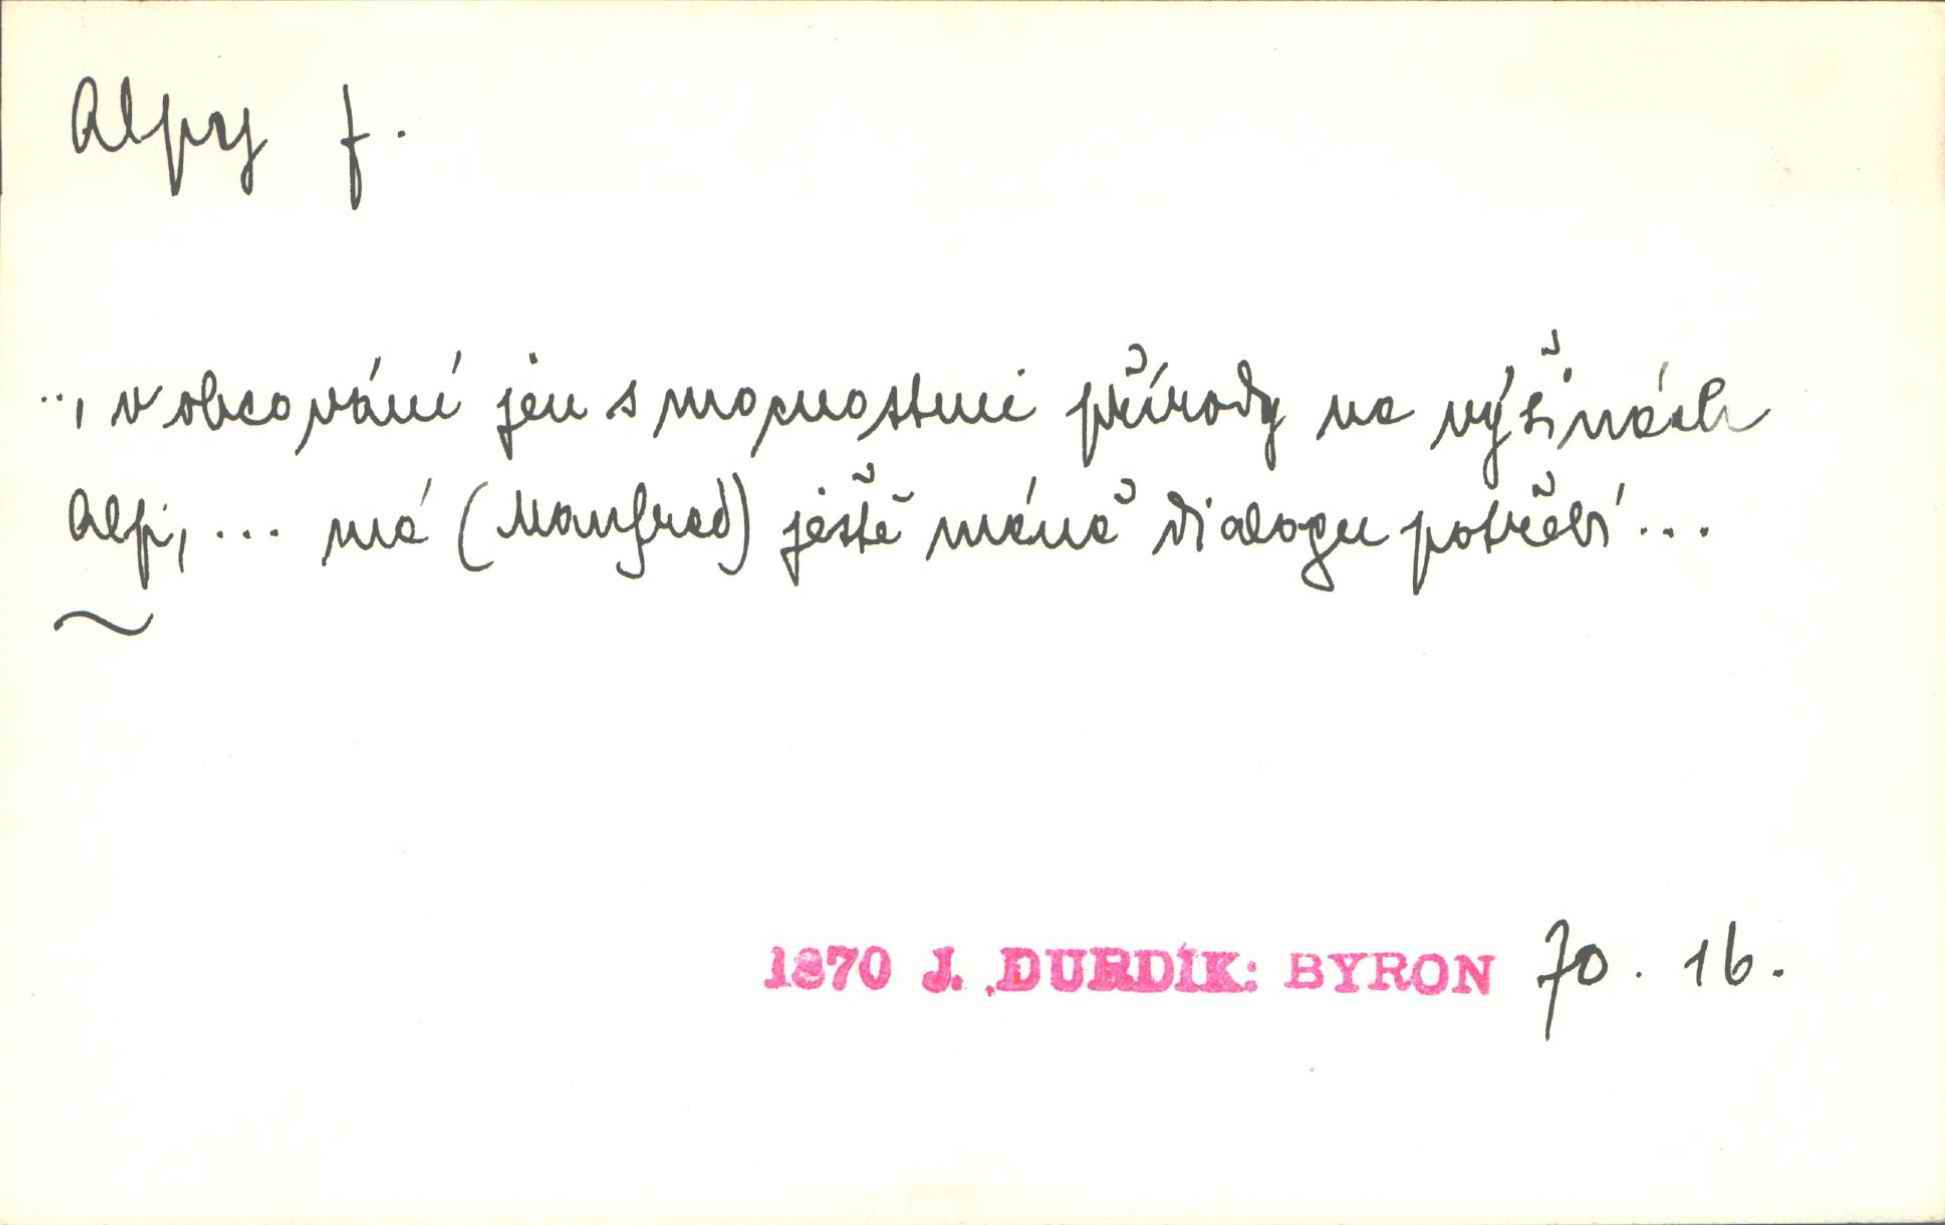 Alpy f.
.., v obcování jen s mocnostmi přírody na výšinách
Alp, ... má (Manfred) ještě méně dialogu potřebí ...
1870 J. DURDÍK: BYRON 70. 16.